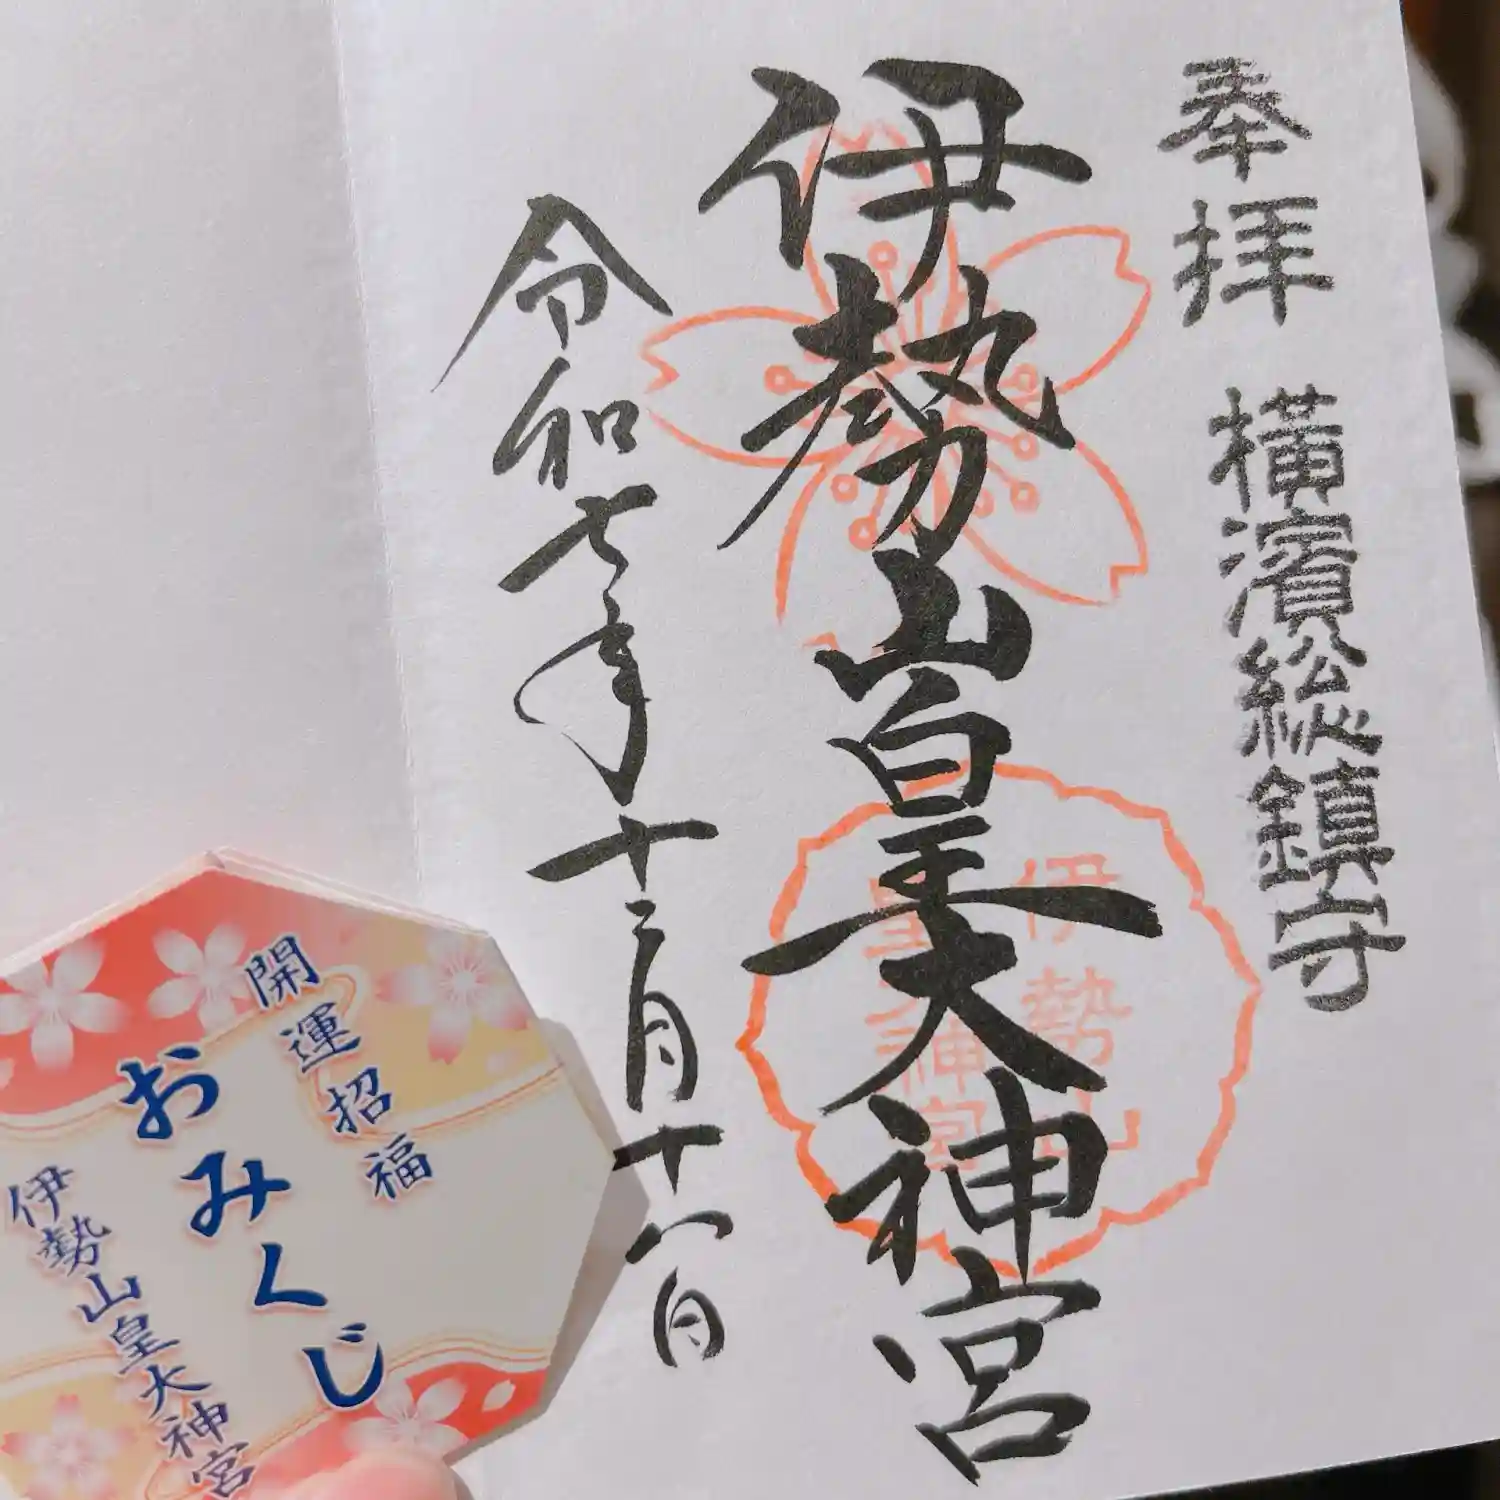 奉拝 横濱総鎮守
伊勢山皇大神宮
令和七年十二月十八日
伊勢山
皇大神宮
開運招福
おみくじ
伊勢山皇大神宮